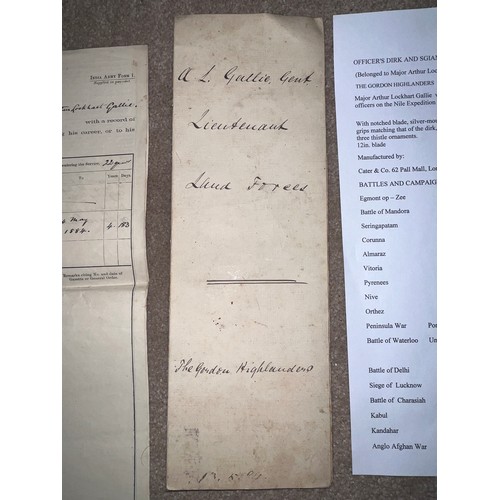 INDIA ARMY FORM I.
Lockhart Gallie.
with a record of
his career, or to his
22 years
To
Years Days
May
1884.
4 183
Remarks citing No. and date of
A L Gallie, Gent
Lieutenant
Land Forces
The Gordon Highlanders
OFFICER'S DIRK AND SGIAN
(Belonged to Major Arthur Loc
THE GORDON HIGHLANDERS
Major Arthur Lockhart Gallie
officers on the Nile Expedition
With notched blade, silver-mou
grips matching that of the dirk,
three thistle ornaments.
12in. blade
Manufactured by:
Cater & Co. 62 Pall Mall, Lon
BATTLES AND CAMPAIG
Egmont op – Zee
Battle of Mandora
Seringapatam
Corunna
Almaraz
Vitoria
Pyrenees
Nive
Orthez
Peninsula War Por
Battle of Waterloo Un
Battle of Delhi
Siege of Lucknow
Battle of Charasiah
Kabul
Kandahar
Anglo Afghan War